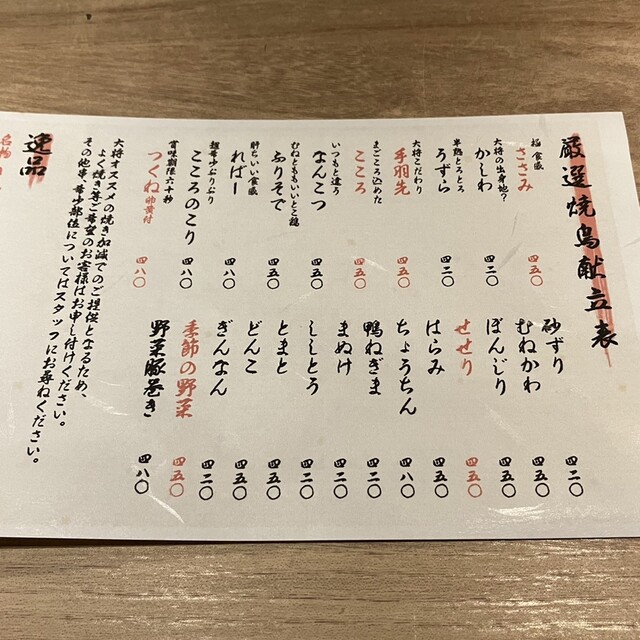 厳選焼鳥献立表
食感
ささみ 四五〇
大将の出身地?
かしわ 四二〇
半熟とろとろ
うずら 四二〇
大将こだわり
手羽先 四五〇
まごころ込めた
こころ 四五〇
いつもと違う
なんこつ 四五〇
むねとももいいとこ鶏
ふりそで 四五〇
食感
ればー 四八〇
超希少ぷりぷり
こころのこり 四八〇
賞味期限六十秒
つくね 卵黄付 四八〇
砂ずり 四二〇
むねかわ 四五〇
ぼんじり 四五〇
せせり 四五〇
はらみ 四五〇
ちょうちん 四八〇
鴨ねぎま 四二〇
まぬけ 四二〇
ししとう 四二〇
とまと 四五〇
どんこ 四五〇
ぎんなん 四二〇
季節の野菜 四五〇
野菜豚巻き 四八〇
大将オススメの焼き加減でのご提供となるため、
よく焼き等ご希望のお客様はお申し付けください。
その他串・希少部位についてはスタッフにお尋ねください。
逸品
名物